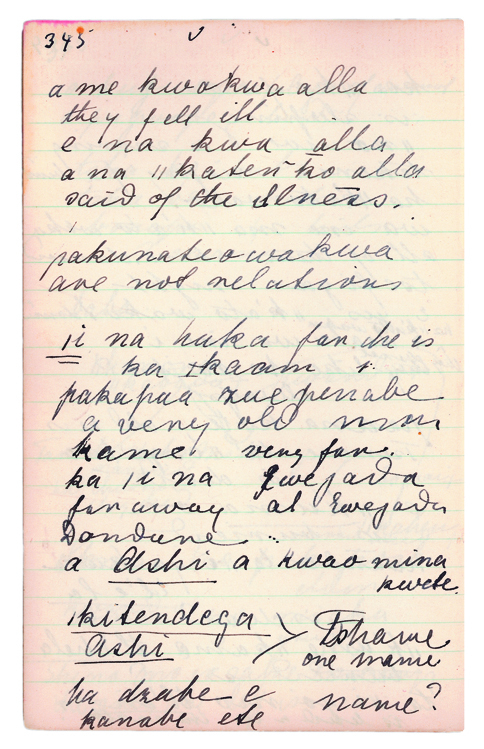 345
a me kwokwa alla
they fell ill
e na kwa alla
a na ||katen ko alla
said of the illness.
pakunateowakwa
are not relations
|i na haka far, he is
ka ‡kaam
pakapaa zue penabe
a very old man
kame very far.
ka |i na
far away at
Dondune
a Ashi a kwao mina
kwete.
|kitendega
Ashi
Tshawe
one name
ha dzabe e name?
kanabe ete